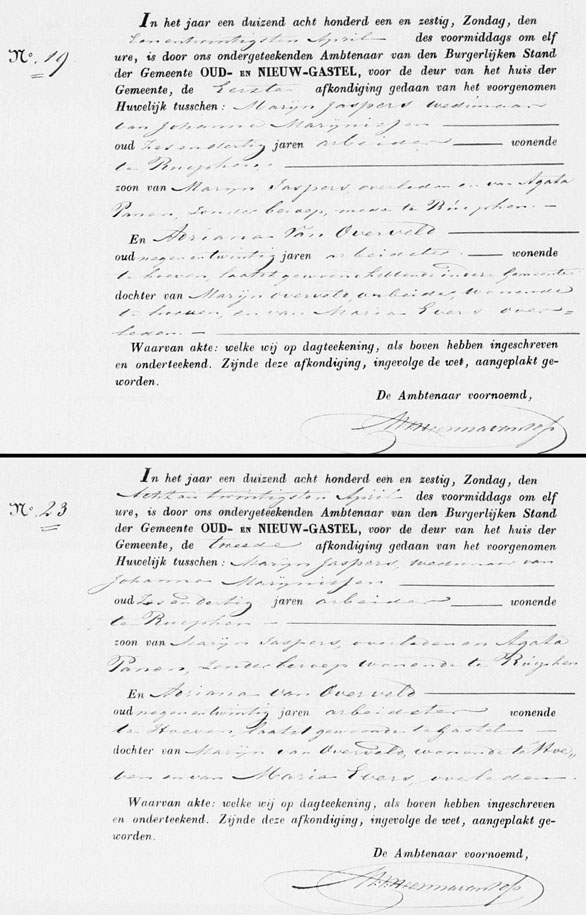 In het jaar een duizend acht honderd een en zestig, Zondag, den
Eenentwintigsten April des voormiddags om elf
N.o 19 ure, is door ons ondergeteekenden Ambtenaar van den Burgerlijken Stand
der Gemeente OUD- EN NIEUW-GASTEL, voor de deur van het huis der
Gemeente, de Eerste afkondiging gedaan van het voorgenomen
Huwelijk tusschen: Marijn Jaspers weduwnaar
van Johanna Marijnissen
oud Zes en dertig jaren arbeider wonende
te Rucphen
zoon van Marijn Jaspers, overleden en van Agata
Panen, zonder beroep, mede te Rucphen
En Adriana Van Overveld
oud negen en twintig jaren arbeidster wonende
te hoeven, laatst gewoond hebbende in deze Gemeente
dochter van Marijn overveld, arbeider, wonende
te hoeven, en van Maria Evers over=
leden.
Waarvan akte: welke wij op dagteekening, als boven hebben ingeschreven
en onderteekend. Zijnde deze afkondiging, ingevolge de wet, aangeplakt ge-
worden.
De Ambtenaar voornoemd,
In het jaar een duizend acht honderd een en zestig, Zondag, den
Acht en twintigsten April des voormiddags om elf
N.o 23 ure, is door ons ondergeteekenden Ambtenaar van den Burgerlijken Stand
der Gemeente OUD- EN NIEUW-GASTEL, voor de deur van het huis der
Gemeente, de tweede afkondiging gedaan van het voorgenomen
Huwelijk tusschen: Marijn Jaspers, weduwnaar van
Johanna Marijnissen
oud Zes en dertig jaren arbeider wonende
te Rucphen
zoon van Marijn Jaspers, overleden en Agata
Panen, zonder beroep wonende te Rucphen
En Adriana van Overveld
oud negen en twintig jaren arbeidster wonende
te Hoeven, laatst gewoond te Gastel
dochter van Marijn van Overveld, wonende te Hoe=
ven en van Maria Evers, overleden
Waarvan akte: welke wij op dagteekening, als boven hebben ingeschreven
en onderteekend. Zijnde deze afkondiging, ingevolge de wet, aangeplakt ge-
worden.
De Ambtenaar voornoemd,